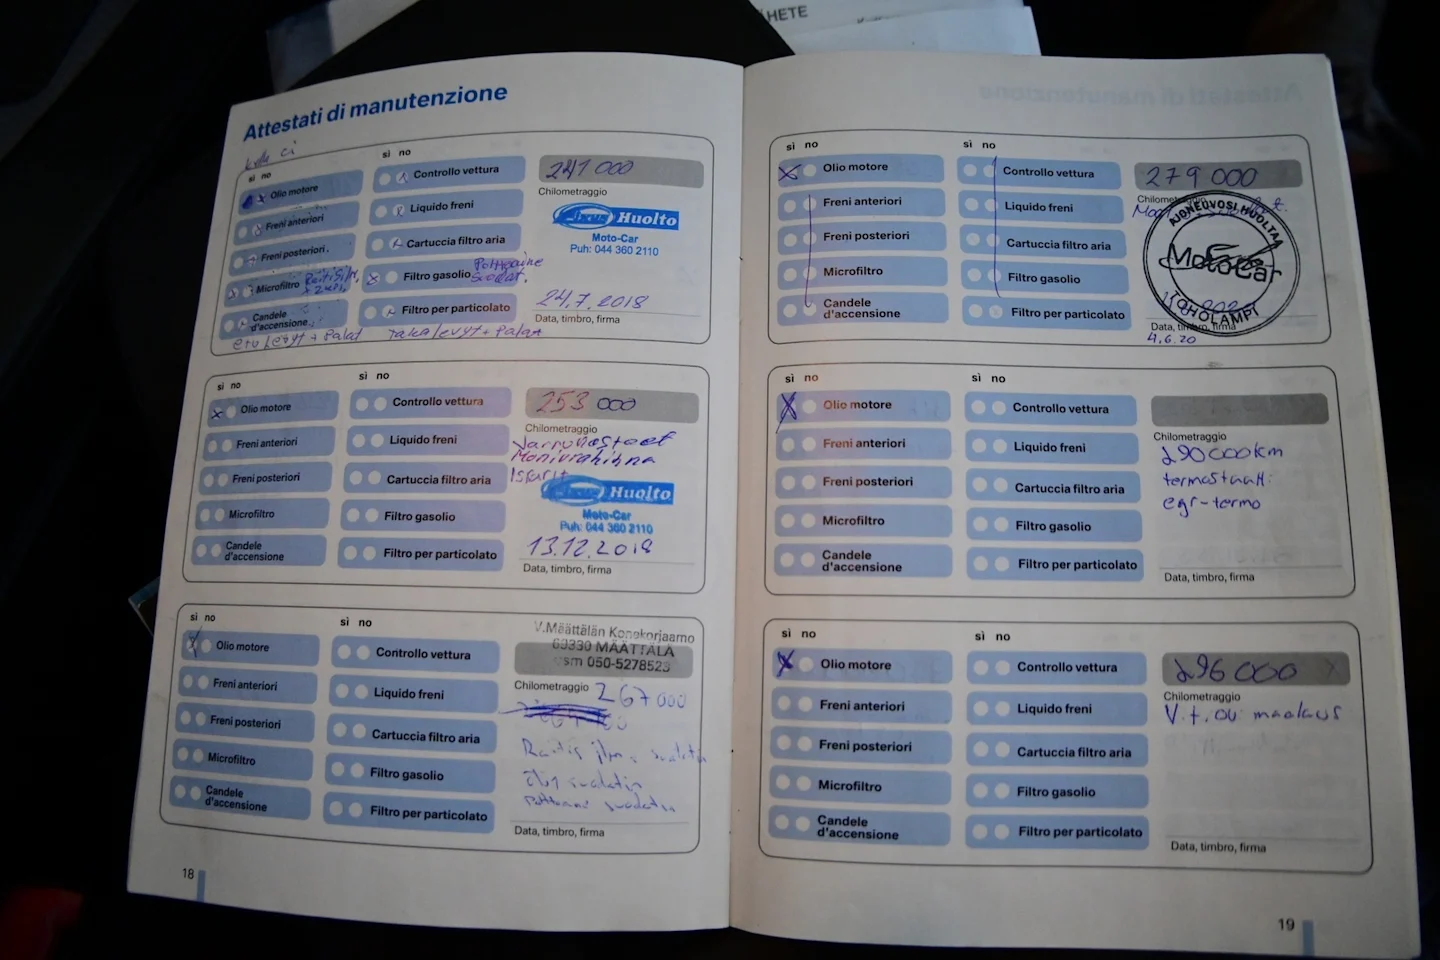 HETE
Attestati di manutenzione
sì no
sì no
Olio motore
Freni anteriori
Freni posteriori
Microfiltro
Candele
d'accensione
Controllo vettura
Liquido freni
Cartuccia filtro aria
Filtro gasolio
Polttoaine
suodat.
Filtro per particolato
etulevyt + palat
takalevyt + palat
241 000
Chilometraggio
Huolto
Moto-Car
Puh: 044 360 2110
24.7.2018
Data, timbro, firma
sì no
sì no
Olio motore
Freni anteriori
Freni posteriori
Microfiltro
Candele
d'accensione
Controllo vettura
Liquido freni
Cartuccia filtro aria
Filtro gasolio
Filtro per particolato
253 000
Chilometraggio
Moniurahihna
Huolto
Moto-Car
Puh: 044 360 2110
13.12.2018
Data, timbro, firma
sì no
sì no
Olio motore
Freni anteriori
Freni posteriori
Microfiltro
Candele
d'accensione
Controllo vettura
Liquido freni
Cartuccia filtro aria
Filtro gasolio
Filtro per particolato
V.Määttälän Konekorjaamo
69330 MÄÄTTÄLÄ
gsm 050-5278523
Chilometraggio
267 000
Raitis ilma suodatin
öljy suodatin
polttoaine suodatin
Data, timbro, firma
18
sì no
sì no
Olio motore
Freni anteriori
Freni posteriori
Microfiltro
Candele
d'accensione
Controllo vettura
Liquido freni
Cartuccia filtro aria
Filtro gasolio
Filtro per particolato
279 000
Chilometraggio
AJONEUVOSI HUOLTAA
MotoCar
TOHOLAMPI
Data, timbro, firma
4.6.20
sì no
sì no
Olio motore
Freni anteriori
Freni posteriori
Microfiltro
Candele
d'accensione
Controllo vettura
Liquido freni
Cartuccia filtro aria
Filtro gasolio
Filtro per particolato
Chilometraggio
290 000km
termostaatti
egr-termo
Data, timbro, firma
sì no
sì no
Olio motore
Freni anteriori
Freni posteriori
Microfiltro
Candele
d'accensione
Controllo vettura
Liquido freni
Cartuccia filtro aria
Filtro gasolio
Filtro per particolato
296 000
Chilometraggio
V.t. ou maalaus
Data, timbro, firma
19